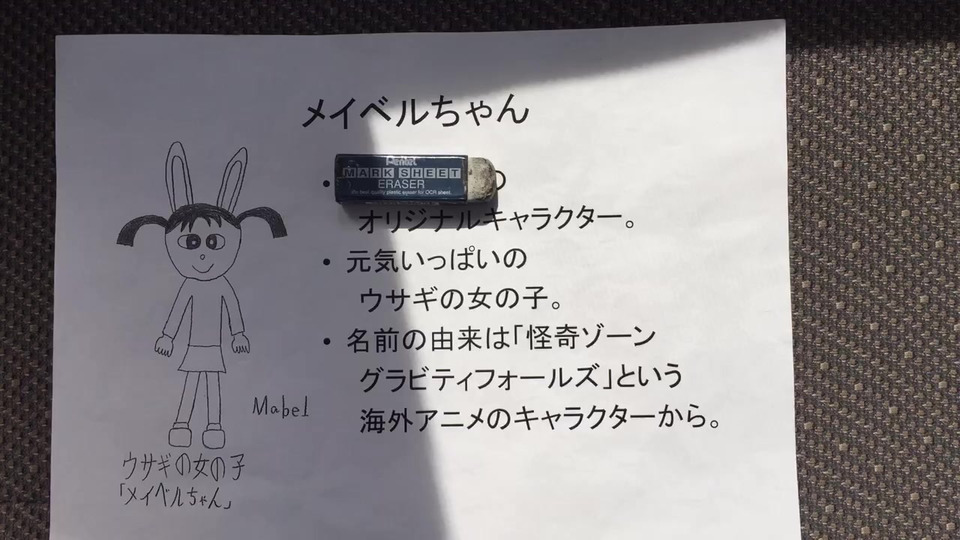 メイベルちゃん
Pentel
MARK SHEET
ERASER
• の
オリジナルキャラクター。
• 元気いっぱいの
ウサギの女の子。
• 名前の由来は「怪奇ゾーン
グラビティフォールズ」という
海外アニメのキャラクターから。
Mabel
ウサギの女の子
「メイベルちゃん」